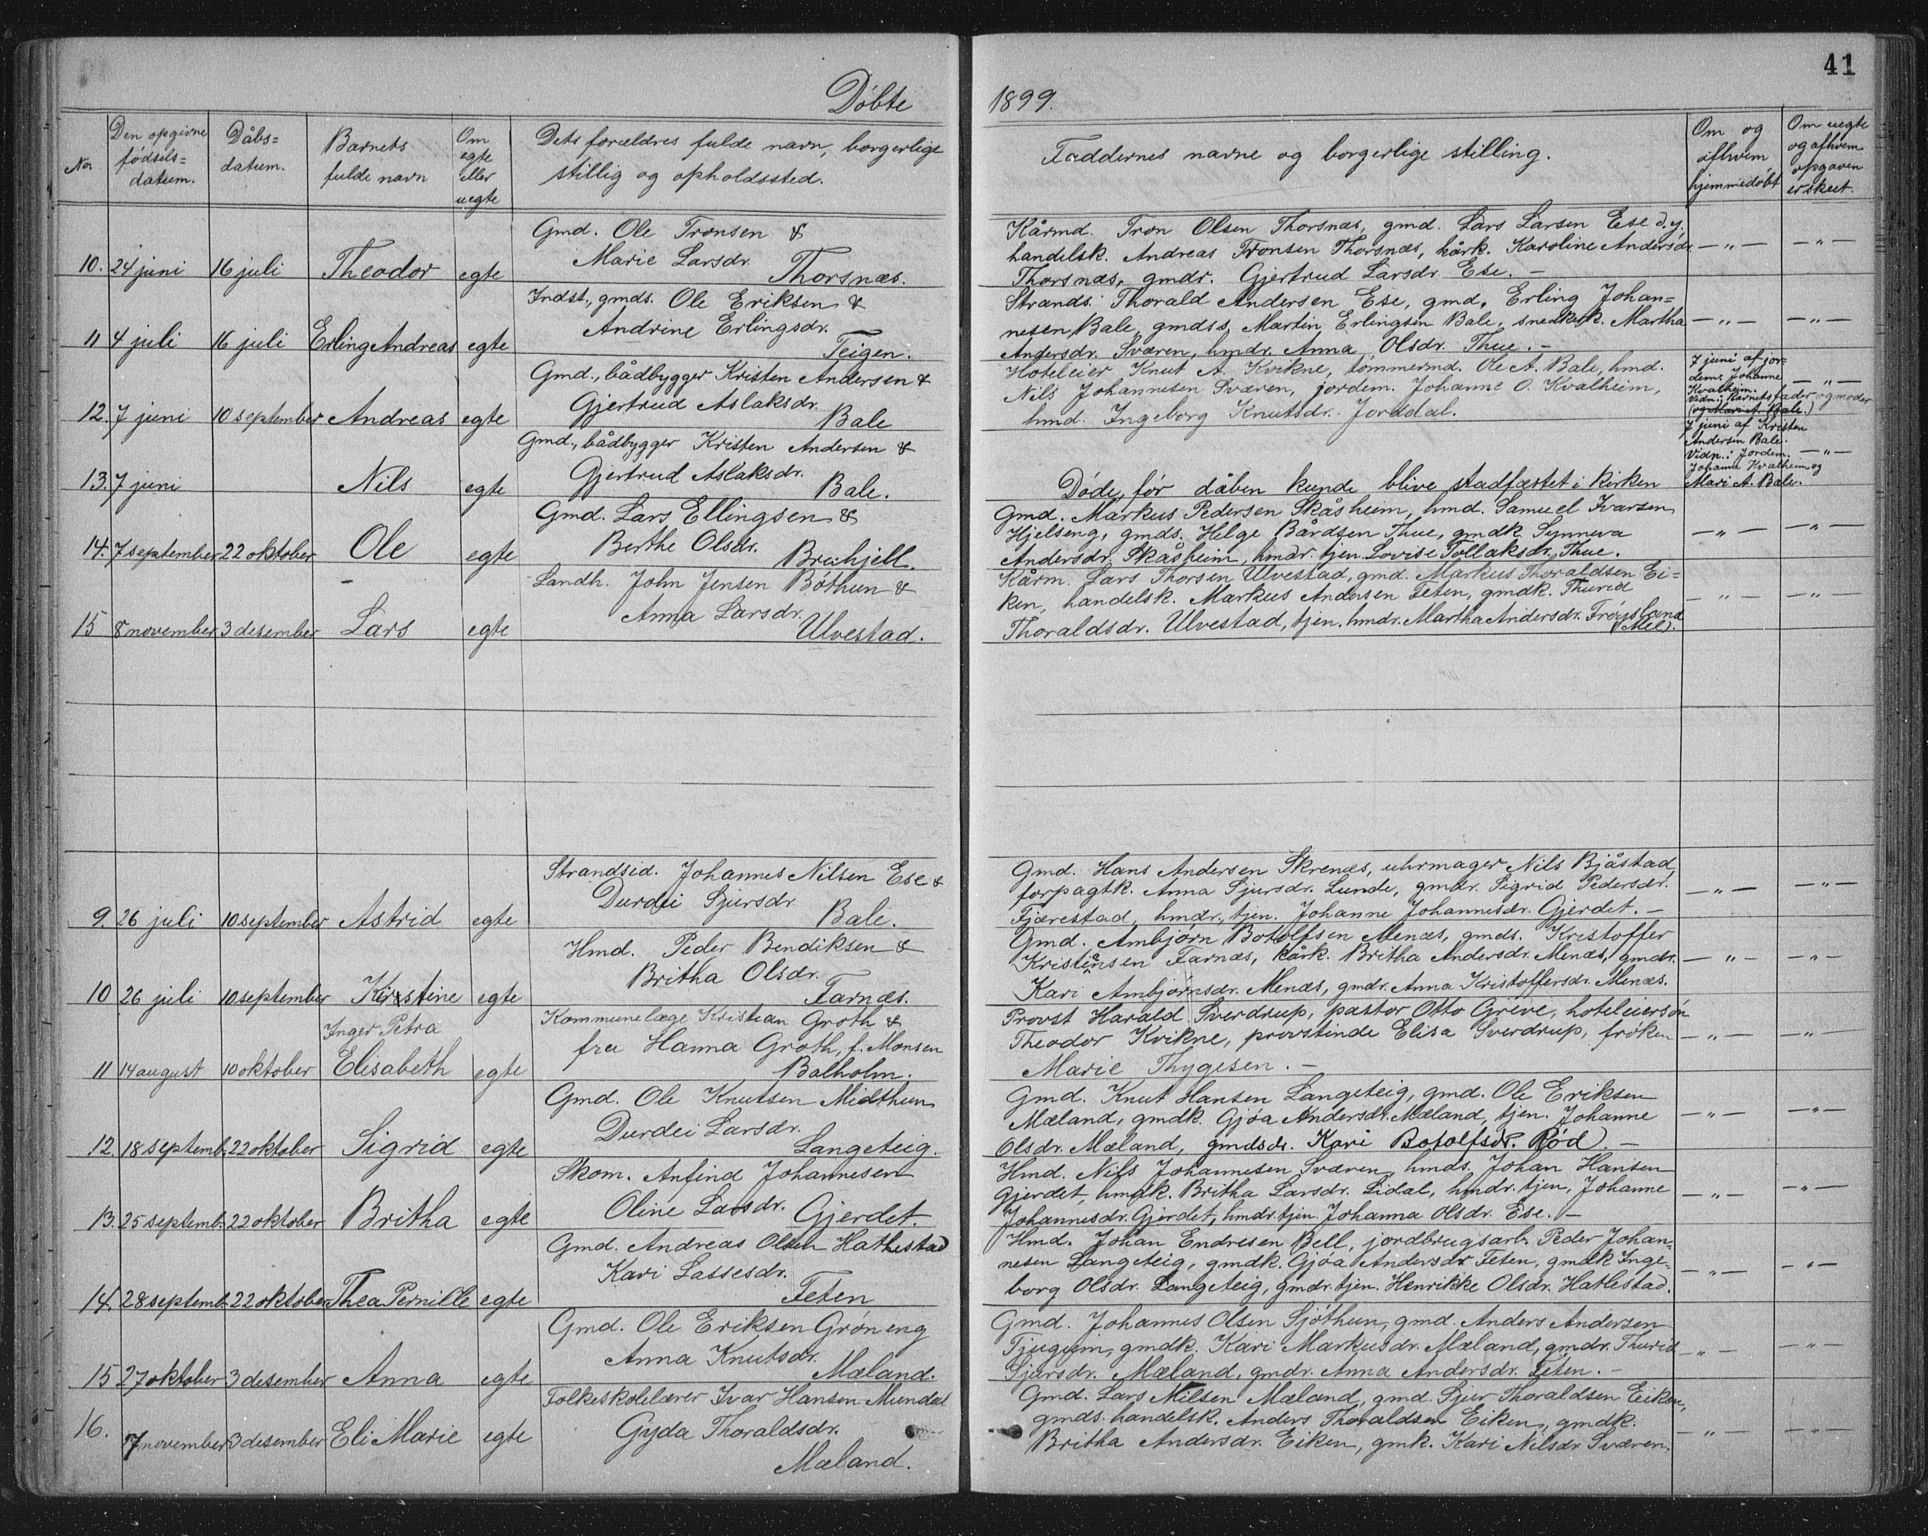 41
Døbte 1899.
No.
Den opgivne
fødsels-
datum.
Dåbs-
datum.
Barnets
fulde navn
Om
egte
eller
uegte
Dets forældres fulde navn, borgerlige
stillig og opholdssted.
Faddernes navne og borgerlige stilling.
Om og
afhvem
hjemmedøbt
Om uegte
og afhvem
opgaven
er skeet.
Gmd. Ole Tronsen &
Marie Larsdr.
10. 24 juni 16 juli Theodor egte Thorsnæs.
Kårmd. Tron Olsen Thorsnæs, gmd. Lars Larsen Ese d.y.
handelsk. Andreas Tronsen Thorsnæs, kårk. Karoline Andersdr
Thorsnæs, gmdr. Gjertrud Larsdr. Ese. —
— " — — " —
Indst., gmds. Ole Eriksen &
Andrine Erlingsdr.
11 4 juli 16 juli Erling Andreas egte Teigen.
Strands. Thorald Andersen Ese, gmd. Erling Johan=
nesen Bale, gmds. Martin Erlingsen Bale, snedkerk. Martha
Andersdr. Sværen, hmdr. Anna Olsdr. Thue. —
— " — — " —
Gmd., bådbygger Kristen Andersen &
Gjertrud Aslaksdr.
12. 7 juni 10 september Andreas egte Bale
Hoteleier Knut A. Kvikne, tømmermd. Ole A. Bale, hmd.
Nils Johannesen Sværen, jordem. Johanne O. Kvalheim,
hmd. Ingeborg Knutsdr. Jorddal.
7 juni af jor-
dem. Johanne
Kvalheim.
Vidn.: Barnets fader og moder
(og Mari A. Bale.)
— " —
Gmd., bådbygger Kristen Andersen &
Gjertrud Aslaksdr.
13. 7 juni Nils egte Bale.
Døde, før dåben kunde blive stadfæstet i kirken
7 juni af Kristen
Andersen Bale.
Vidn.: Jordem.
Johanne Kvalheim og
Mari A. Bale.
— " —
Gmd. Lars Ellingsen &
Berthe Olsdr.
14. 7 september 22 oktober Ole egte Bræhjell.
Gmd. Markus Pedersen Skåsheim, hmd. Samuel Ivarsen
Hjelseng, gmds. Helge Bårdsen Thue, gmdk Synneva
Andersdr. Skåsheim, hmdr. tjen. Lovise Tollaksdr. Thue.
— " — — " —
Landh. John Jensen Bøthun &
Anna Larsdr.
15 8 november 3 desember Lars egte Ulvestad.
Kårm. Lars Thorsen Ulvestad, gmd. Markus Thoraldsen Ei=
ken, handelsk. Markus Andersen Feten, gmdk. Thurid
Thoraldsdr. Ulvestad, tjen. hmdr. Martha Andersdr. Frøysland
(Mel).
— " — — " —
Strandsid. Johannes Nilsen Ese &
Durdei Sjursdr.
9. 26 juli 10 september Astrid egte Bale.
Gmd. Hans Andersen Skrenes, uhrmager Nils Bjåstad
forpagtk. Anna Sjursdr. Lunde, gmdr. Sigrid Pedersdr.
Fjærestad, hmdr. tjen. Johanne Johannesdr. Gjerdet. —
— " — — " —
Hmd. Peder Bendiksen &
Britha Olsdr.
10 26 juli 10 september Kirstine egte Farnæs.
Gmd. Ambjørn Botolfsen Menæs, gmds. Kristoffer
Kristiansen Farnæs, kårk. Britha Andersdr. Menæs, gmdr.
Kari Ambjørnsdr. Menæs, gmdr. Anna Kristoffersdr. Menæs.
— " — — " —
Kommunelæge Kristian Groth &
fru Hanna Groth, f. Monsen
Inger Petra
11 14 august 10 oktober Elisabeth egte Balholm.
Provst Harald Sverdrup, pastor Otto Grève, hoteleiersøn
Theodor Kvikne, provstinde Elisa Sverdrup, frøken
Marie Thygesen. —
— " — — " —
Gmd. Ole Knutsen Midthun
Durdei Larsdr.
12. 18 septemb. 22 oktober Sigrid egte Langeteig.
Gmd. Knut Hansen Langeteig, gmd. Ole Eriksen
Mæland, gmdk. Gjøa Andersdr. Mæland, tjen. Johanne
Olsdr. Mæland, gmdsdr. Kari Botolfsdr. Rød. —
— " — — " —
Skom. Anfind Johannesen
Oline Larsdr.
13. 25 septemb. 22 oktober Britha egte Gjerdet.
Hmd. Nils Johannesen Sværen, hmds. Johan Hansen
Gjerdet, hmdk. Britha Larsdr. Lidal, hmdr. tjen. Johanne
Johannesdr. Gjerdet, hmdr. tjen. Johanna Olsdr. Ese. —
— " — — " —
Gmd. Andreas Olsen Hatlestad
Kari Lassesdr.
14. 28 septemb. 22 oktober Thea Pernille egte Feten
Hmd. Johan Endresen Bell, jordbrugsarb. Peder Johan-
nesen Langeteig, gmdk. Gjøa Andersdr Feten, gmdk Inge-
borg Olsdr. Langeteig, gmdr. tjen. Henrikke Olsdr. Hatlestad.
— " — — " —
Gmd. Ole Eriksen Grøneng
Anna Knutsdr.
15 27 oktober 3 desember Anna egte Mæland.
Gmd. Johannes Olsen Sjøthun, gmd. Anders Andersen
Tjugum, gmdk. Kari Markusdr. Mæland, gmdr. Thurid
Sjursdr. Mæland, gmdr. Anna Andersdr. Feten. —
— " — — " —
Folkeskolelærer Ivar Hansen Mundal
Gyda Thoraldsdr.
16. 17 november 3 desember Eli Marie egte
Mæland.
Gmd. Lars Nilsen Mæland, gmd. Sjur Thoraldsen Eiken,
gmds. handelsk. Anders Thoraldsen Eiken, gmdk.
Britha Andersdr. Eiken, gmk. Kari Nilsdr Sværen.
— " — — " —